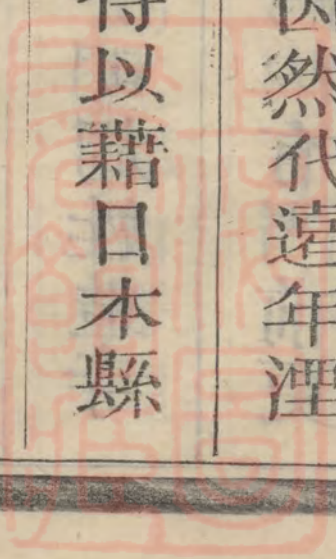 因然代遠年湮
得以藉口本縣